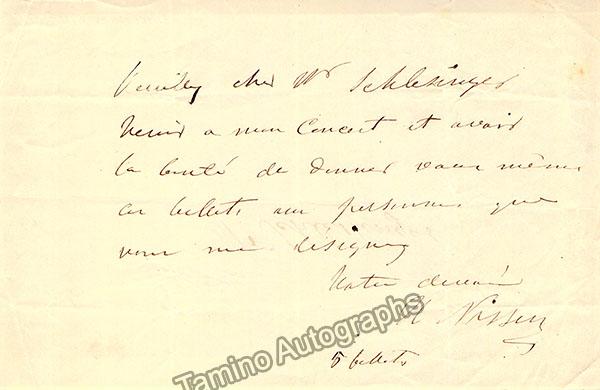 Veuillez cher Mr Schlesinger
venir a mon Concert et avoir
la bonté de donner vous même
ces billets aux personnes que
vous me designez
Votre devoué
H Nissen
5 billets
Tamino Autographs